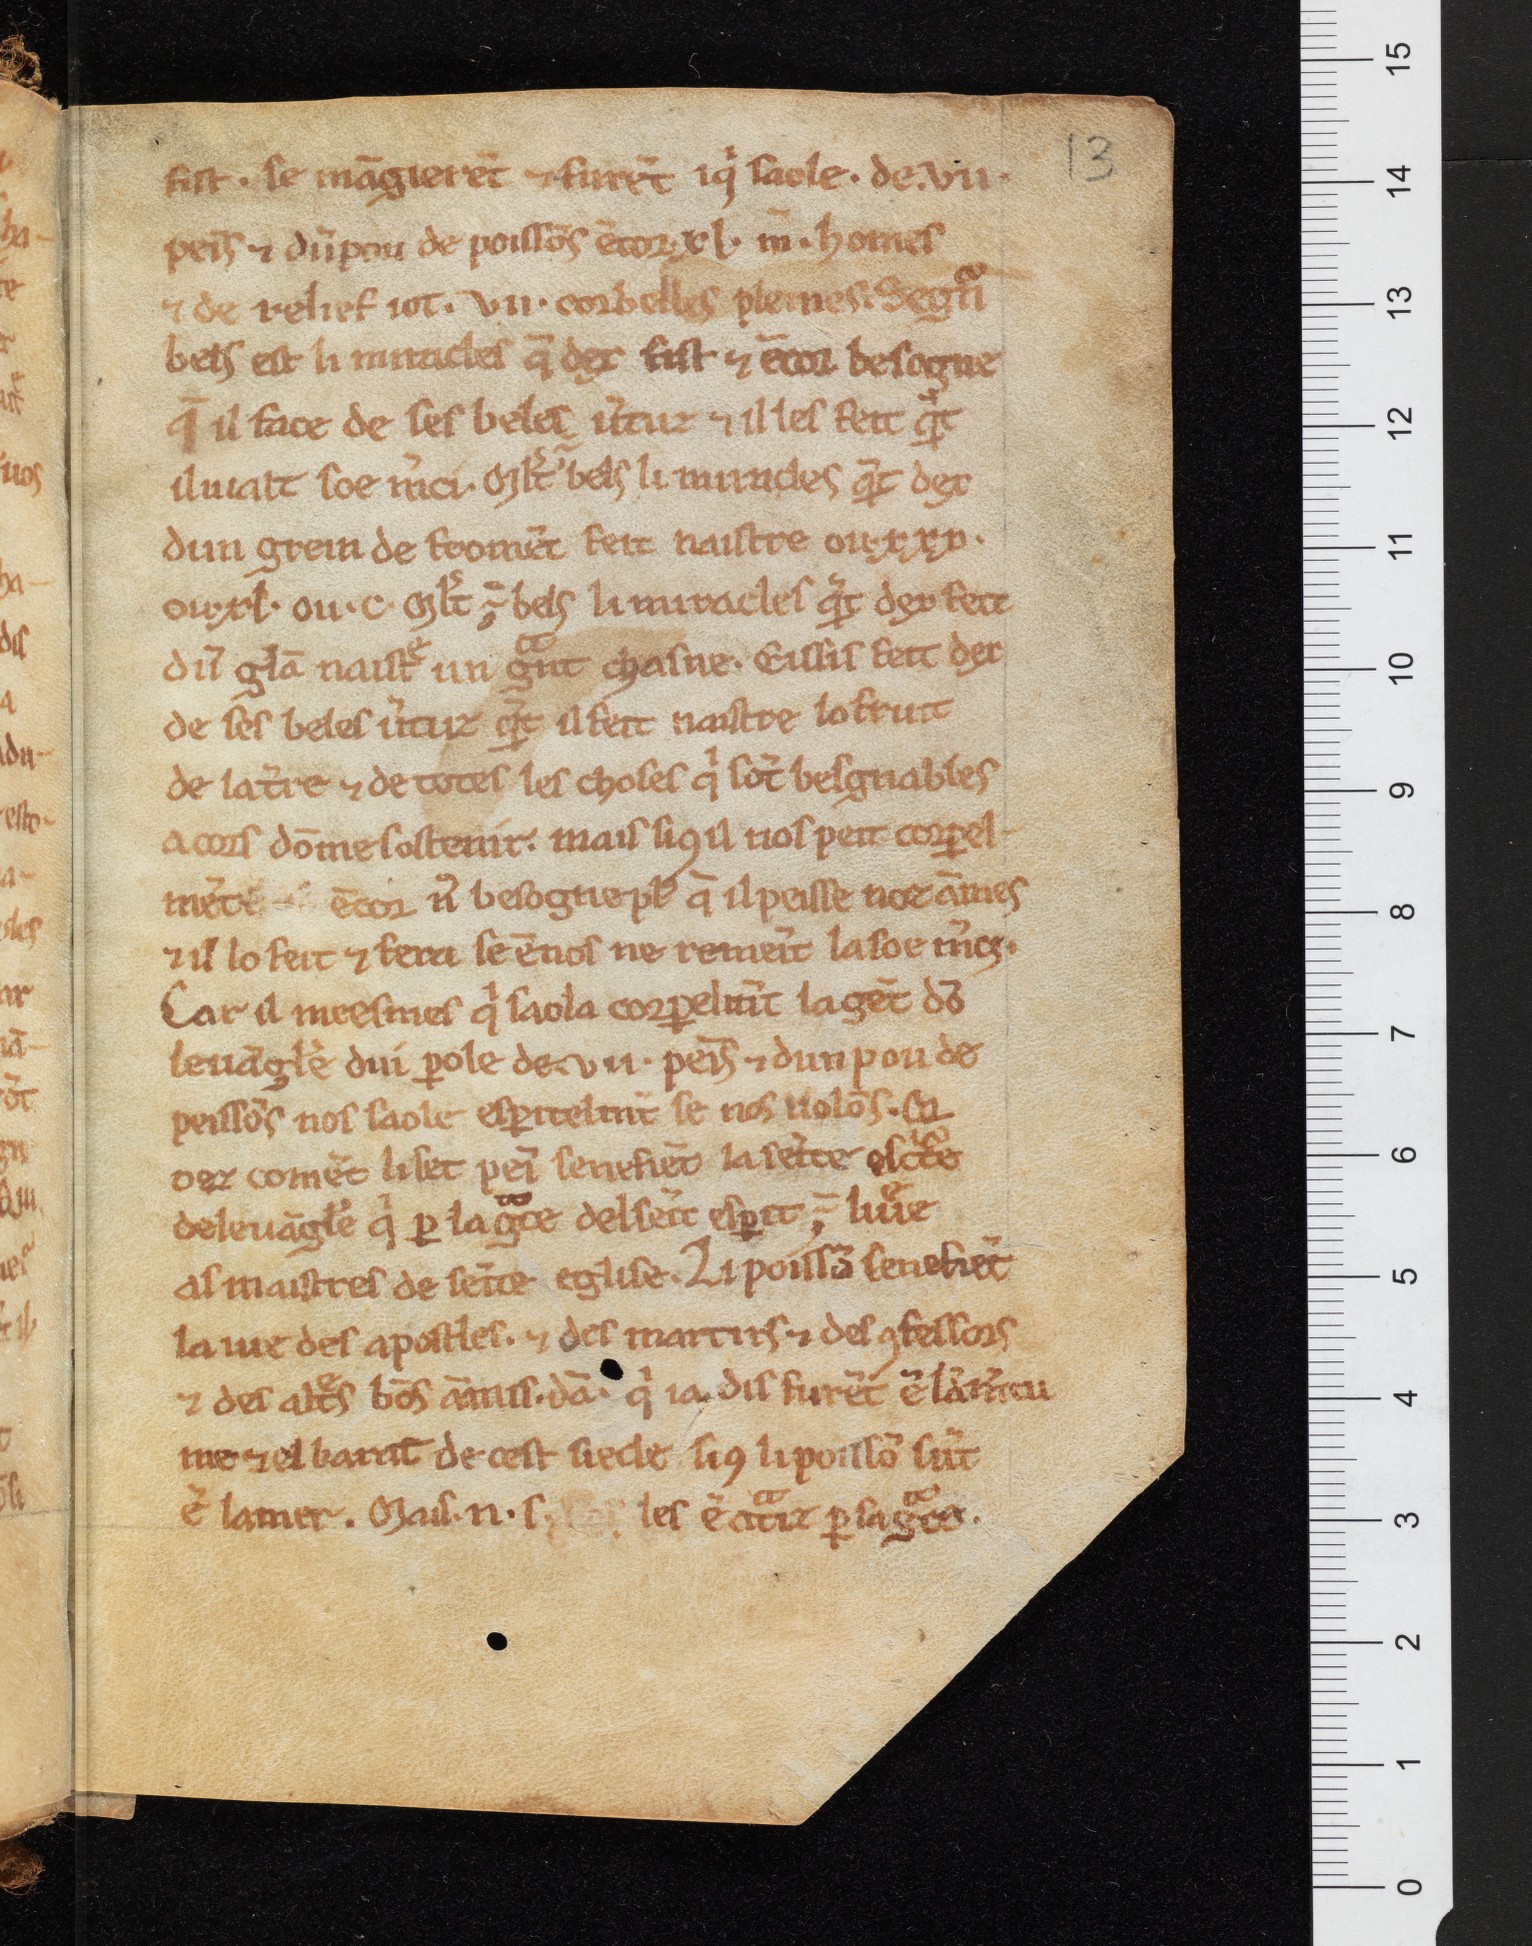 13
fist. se mãgierẽt ⁊ furẽt iqͥ saole. de .vii.
peis̃ ⁊ dũ pou de poissõs ẽcor .xl. m̃. homes
⁊ de relief iot. vii. corbelles pleines. Segñͣ
bels est li miracles q̃ dex fist ⁊ ẽcor besogne
q̃ il face de ses beles ṽtuz ⁊ il les feit qͣ̃t
il uialt soe m̃ci. Ml̃t ÷ bels li miracles qͣ̃t dex
dun grein de fromẽt feit naistre ou .xxx.
ou .xl. ou .c. Ml̃t ÷ bels li miracles qͣ̃t dex feit
dũ glã naistͤ un gͣnt chasne. Eissis feit dex
de ses beles ṽtuz qͣ̃t il feit naistre lo fruit
de lat̃re ⁊ de totes les choses qͥ sõt besgnables
a cors dõme sostenir. mais si ꝯ il nos peit corꝑel-
mẽt ẽcor ñ besogne pl᷒ q̃ il peisse noz ãmes
⁊ il lo feit ⁊ fera se ẽ nos ne remeĩt la soe m̃ci.
Car il meesmes qͥ saola corꝑelmt̃ la gẽt dõ
leuãgle dui ꝑole de .vii. peis̃ ⁊ dun pou de
peissõs nos saole esꝑitelmt̃ se nos uolõs. Or
oez comẽt li set peĩ senefiẽt la seĩte escͥte
de leuãgle qͥ ꝑ la gͣce del seĩt esꝑit ÷ liuͤe
as maistres de seĩte eglise. Li poissõ senefiẽt
la uie des apostles. ⁊ des martirs ⁊ des ꝯfessors
⁊ des altͤs bõs ãmis. dã. qͥ ia dis furẽt ẽ lam̃tu
me ⁊ el barat̃ de cest siecle si ꝯ li poissõ sũt
ẽ lamer. Mais .n. s. les ẽ atͣiz ꝑ sa gͣce.